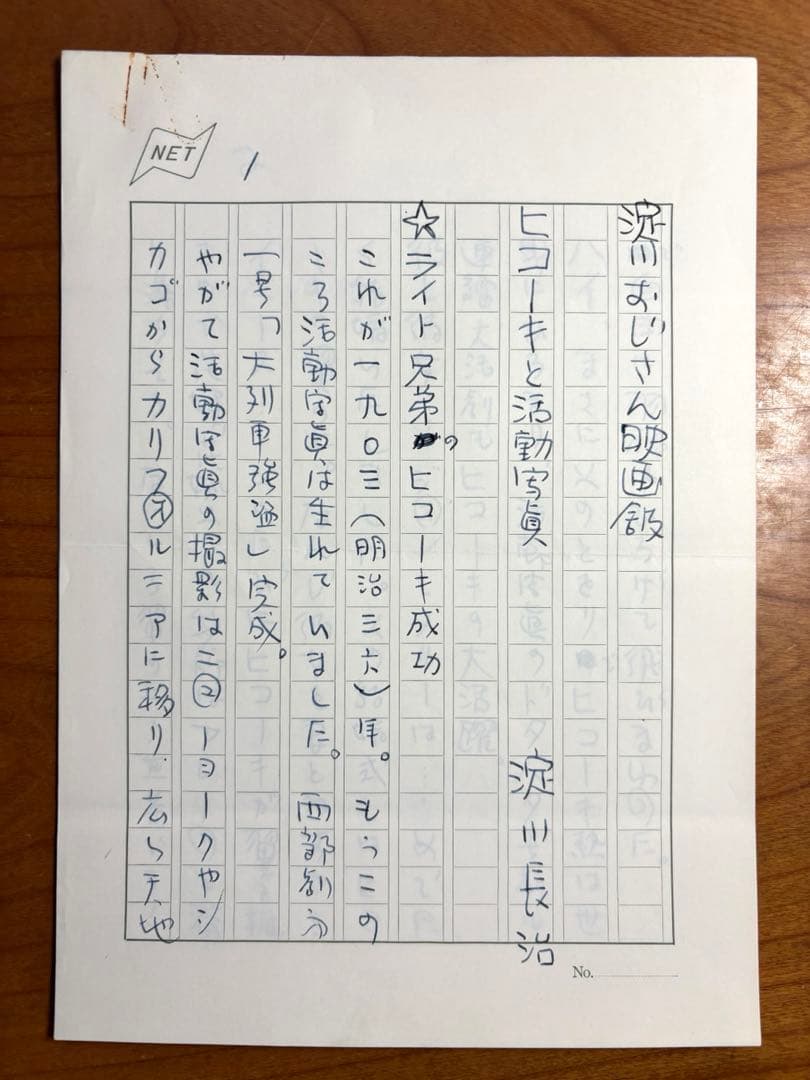 NET
1
淀川おじさん映画館
ヒコーキと活動写真　淀川長治
☆ライト兄弟のヒコーキ成功
これが一九〇三（明治三六）年。もうこの
ころ活動写真は生れていました。西部劇
一号「大列車強盗」完成。
やがて活動写真の撮影はニューヨークやシ
カゴからカリフォルニアに移り、広い天地
No.